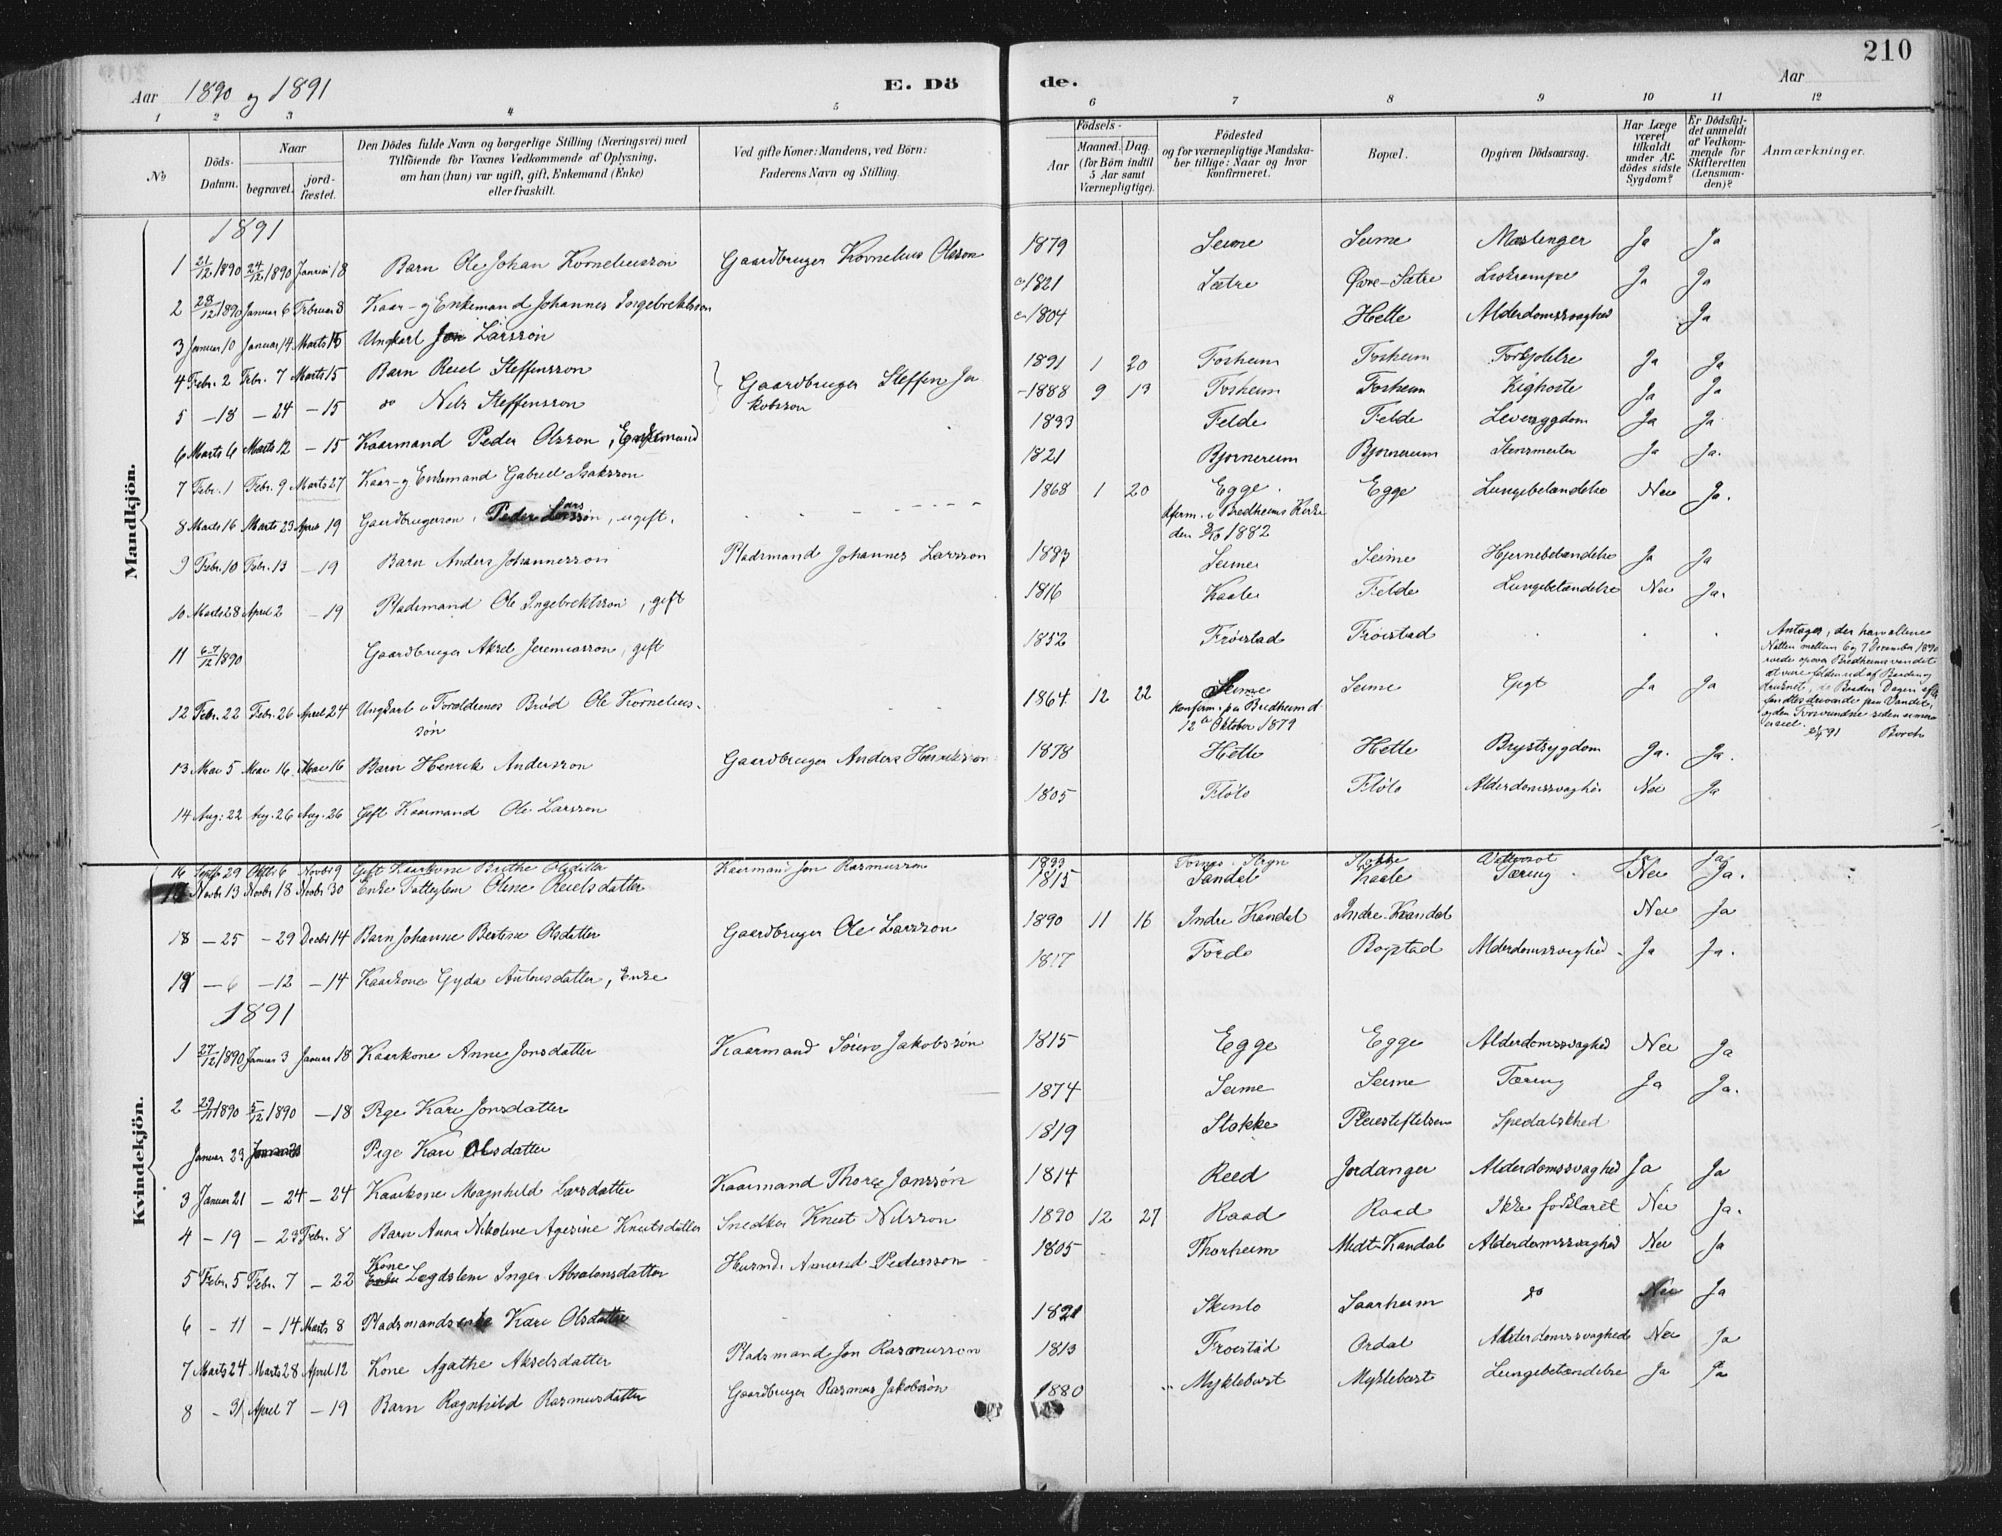 210
Aar 1890 og 1891
E. Döde.
Aar
1 2 3 4 5 6 7 8 9 10 11 12
No
Döds-Datum.
Naar
begravet.
jordfæstet.
Den Dödes fulde Navn og borgerlige Stilling (Næringsvei) med
Tilföiende for Voxnes Vedkommende af Oplysning,
om han (hun) var ugift, gift, Enkemand (Enke)
eller fraskilt.
Ved gifte Koner: Mandens, ved Börn:
Faderens Navn og Stilling.
Födsels-
Aar
Maaned. Dag.
(for Börn indtil
5 Aar samt
Værnepligtige).
Födested
og for værnepligtige Mandska-
ber tillige: Naar og hvor
konfirmeret.
Bopæl.
Opgiven Dödsaarsag.
Har Læge
været
tilkaldt
under Af-
dödes sidste
Sygdom?
Er Dödsfal-
det anmeldt
af Vedkom-
mende for
Skifteretten
(Lensman-
den)?
Anmærkninger.
Mandkjön.
1891
1 21/12 1890 24/12 1890 Januar 18 Barn Ole Johan Korneliussøn Gaardbruger Kornelius Olsson 1879 Seime Seime Mæslinger Ja Ja
2 28/12 1890 Januar 6 Februar 8 Kaar- og Enkemand Johannes Ingebrektsson 1821 Sætre Øvre-Sætre Ja Ja
3 Januar 10 Januar 14 Marts 15 Ungkarl Jon Larssøn 1804 Hette Alderdomssvaghed Ja
4 Febr. 2 Febr. 7 Marts 15 Barn Reiel Steffensson Gaardbruger Steffen Ja 1891 1 20 Fosheim Fosheim Forkjølelse Ja Ja
kobsson
5 -18 -24 -15 do Nils Steffensson 1888 9 13 Fosheim Fosheim Kighoste Ja Ja
6 Marts 6 Marts 12 -15 Kaarmand Peder Olsson, Enkemand 1833 Felde Felde Leversygdom Ja Ja
7 Febr. 1 Febr. 9 Marts 27 Kaar- og Enkemand Gabriel Isaksson 1821 Bjørnereim Bjørnereim Stensmerter Ja Ja.
8 Marts 16 Marts 23 April 19 Gaardbrugersøn, Peder Larssøn, ugift. 1868 1 20 Egge Egge Lungebetændelse Nei Ja.
Kfirm. i Bredheims Kirke
den 8/10 1882
9 Febr. 10 Febr. 13 -19 Barn Anders Johannessøn Pladsmand Johannes Larsson Seime Seime Hjernebetændelse Ja Ja
10 Marts 28 April 2 -19 Pladsmand Ole Ingebrektssøn, gift 1816 Kaale Felde Lungebetændelse Nei Ja.
11 6-7/12 1890 Gaardbruger Aksel Jeremiassøn, gift 1852 Frøistad Frøistad
Antages, der han
Natten mellem 6 og 7 December 1890
Bredheimsvandet
at være falden ud af Baaden og
druknet, Baaden Dagen efter
fandtes drivende paa Vandet,
og den Forsvundne siden
91 Borch
12 Febr. 22 Febr. 26 April 24 Ungkarl i Forældrenes Brød Ole Kornelius- 1864 12 22 Seime Seime Gigt Ja Ja
søn
Konfirm. paa Bredheim d
12te Oktober 1879
13 Mai 5 Mai 16 Mai 16 Barn Henrik Anderssøn Gaardbruger Anders Henriksson 1878 Hette Hette Brystsygdom Ja. Ja.
14 Aug. 22 Aug. 26 Aug. 26 Gift Kaarmand Ole Larsson 1805 Flølo Flølo Alderdomssvaghed Nei Ja
Kvindekjön.
16 Septbr 29 Oktbr 6 Novbr 9 Gift Kaarkone Brithe Olsdatter Kaarmand Jon Rasmusson 1833 Stryn Stokke Ja Ja
17 Novbr 13 Novbr 18 Novbr 30 Enke Fattiglem Oline Reielsdatter 1815 Sandal Kaale Tæring Nei Ja.
18 -25 -29 Decbr 14 Barn Johanne Bertine Olsdatter Gaardbruger Ole Larsson 1890 11 16 Indre Kandal Indre-Kandal Nei Ja
19 -6 -12 -14 Kaarkone Gyda Antonsdatter, Enke 1817 Førde Bogstad Alderdomssvaghed Ja Ja.
1891
1 27/12 1890 Januar 3 Januar 18 Kaarkone Anne Jonsdatter Kaarmand Søren Jakobssøn 1815 Egge Egge Alderdomssvaghed Nei Ja
2 29/11 1890 5/12 1890 -18 Pige Kari Jonsdatter 1874 Seime Seime Tæring Ja Ja.
Januar 23 Pige Kari Olsdatter 1819 Stokke Pleiestiftelsen Spedalskhed
3 Januar 21 -24 -24 Kaarkone Magnhild Larsdatter Kaarmand Thore Janssøn 1814 Reed Jordanger Alderdomssvaghed Ja Ja
4 -19 -23 Febr. 8 Barn Anna Nikoline Agesine Knutsdatter Snedker Knut Nilsson 1890 12 27 Raad Raad Ikke forklaret Nei Ja.
Kone
5 Febr. 5 Febr. 7 -22 Enke Lægdslem Inger Absalonsdatter Husmd. Amund Pedersson 1805 Thorheim Midt-Kandal Alderdomssvaghed Nei Ja
6 -11 -14 Marts 8 Pladsmandsenke Kari Olsdatter 1821 Skinlo Saarheim do Nei Ja
7 Marts 24 Marts 28 April 12 Kone Agathe Akselsdatter Pladsmand Jon Rasmusson 1813 Frøistad Ordal Alderdomssvaghed Nei Ja
8 -31 April 7 -19 Barn Ragnhild Rasmusdatter Gaardbruger Rasmus Jakobssøn 1880 Myklebust Myklebust Lungebetændelse Ja Ja